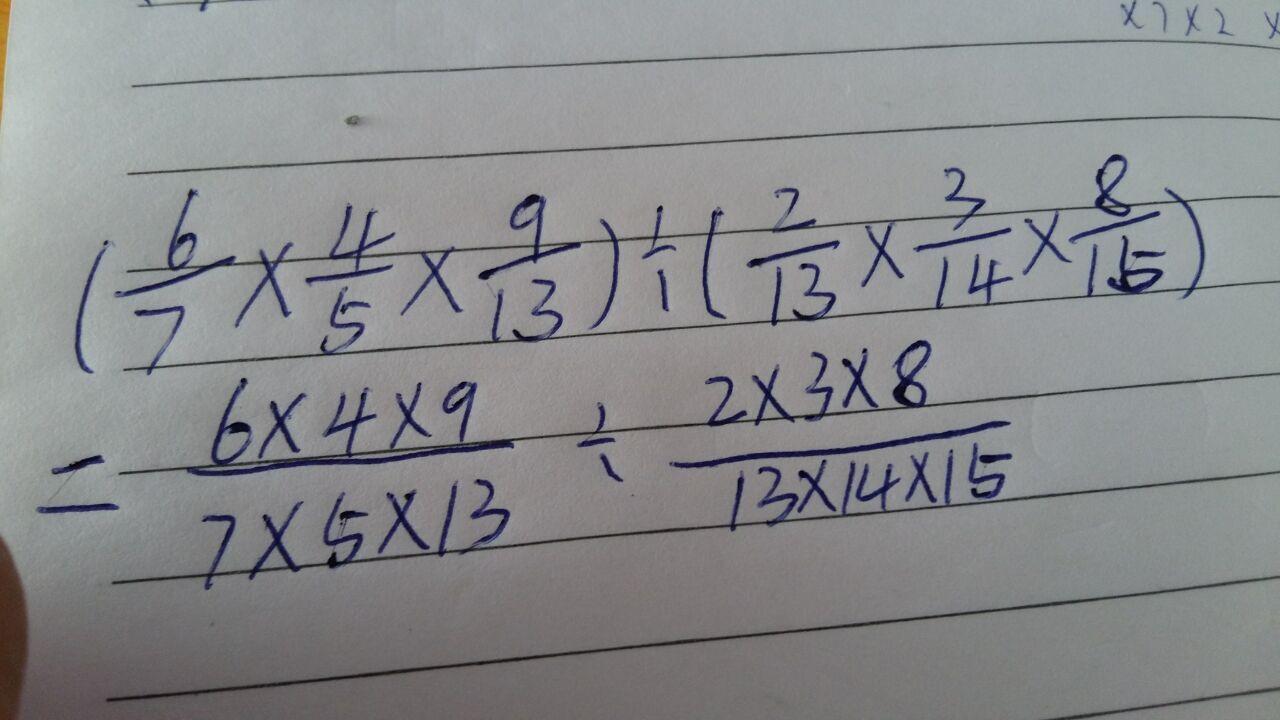 ×7×2 ×
(6/7 × 4/5 × 9/13) ÷ (2/13 × 3/14 × 8/15)
= 6×4×9/7×5×13 ÷ 2×3×8/13×14×15